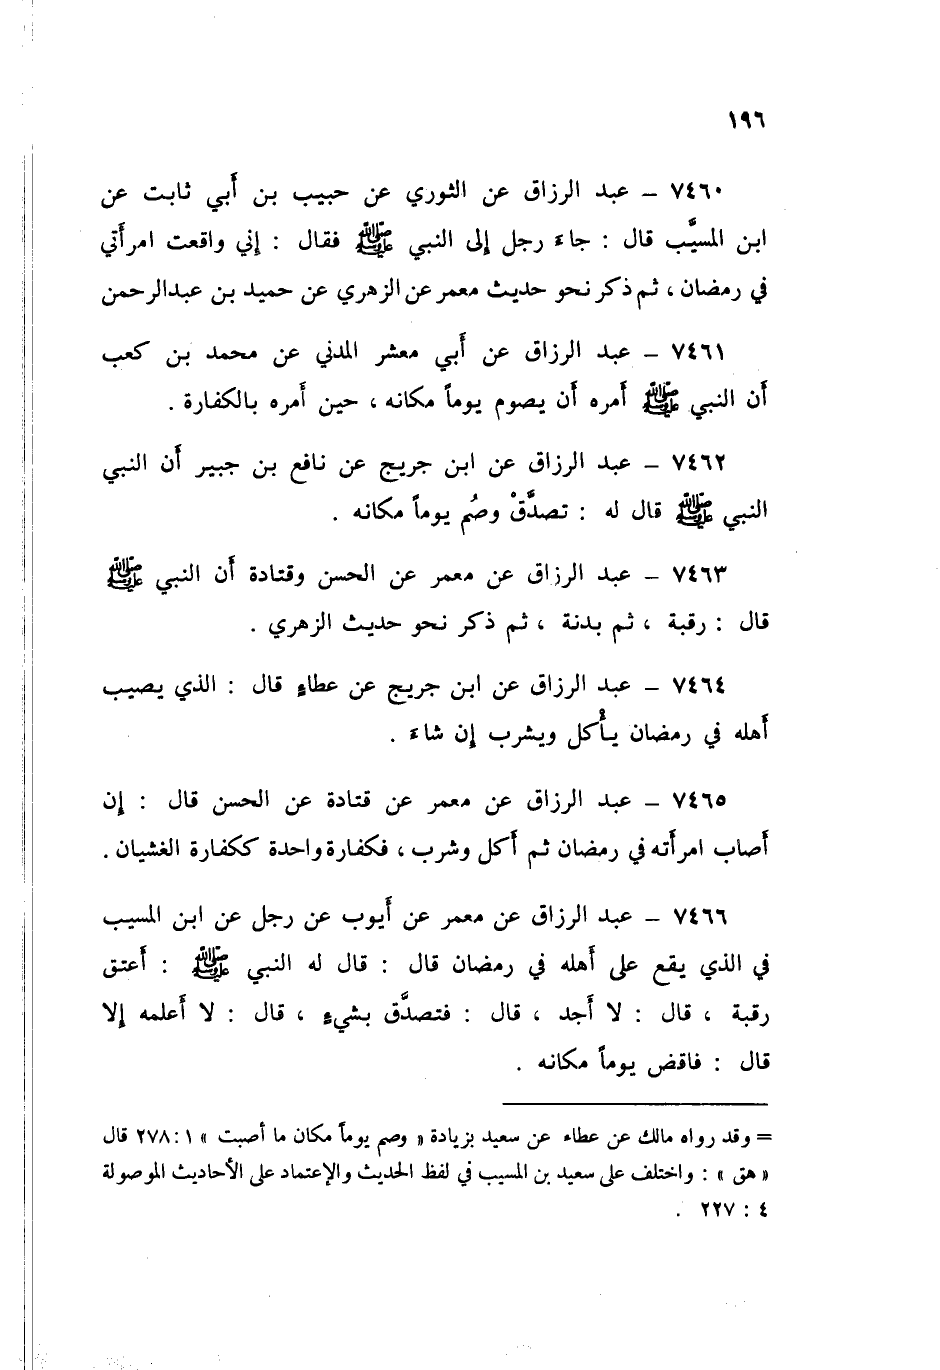 ١٩٦
٧٤٦٠ – عبد الرزاق عن الثوري عن حبيب بن أبي ثابت عن
ابن المسيَّب قال : جاء رجل إلى النبي ﷺ فقال : إني واقعت امرأتي
في رمضان ، ثم ذكر نحو حديث معمر عن الزهري عن حميد بن عبدالرحمن
٧٤٦١ – عبد الرزاق عن أبي معشر المدني عن محمد بن كعب
أن النبي ﷺ أمره أن يصوم يوماً مكانه ، حين أمره بالكفارة .
٧٤٦٢ – عبد الرزاق عن ابن جريج عن نافع بن جبير أن النبي
النبي ﷺ قال له : تصدَّقْ وصُم يوماً مكانه .
٧٤٦٣ – عبد الرزاق عن معمر عن الحسن وقتادة أن النبي ﷺ
قال : رقبة ، ثم بدنة ، ثم ذكر نحو حديث الزهري .
٧٤٦٤ – عبد الرزاق عن ابن جريج عن عطاءٍ قال : الذي يصيب
أهله في رمضان يأْكل ويشرب إن شاءَ .
٧٤٦٥ – عبد الرزاق عن معمر عن قتادة عن الحسن قال : إن
أصاب امرأته في رمضان ثم أكل وشرب ، فكفارة واحدة ككفارة الغشيان .
٧٤٦٦ – عبد الرزاق عن معمر عن أيوب عن رجل عن ابن المسيب
في الذي يقع على أهله في رمضان قال : قال له النبي ﷺ : أعتق
رقبة ، قال : لا أجد ، قال : فتصدَّق بشيءٍ ، قال : لا أعلمه إلا
قال : فاقض يوماً مكانه .
= وقد رواه مالك عن عطاء عن سعيد بزيادة « وصم يوماً مكان ما أصبت » ١ : ٢٧٨ قال
« هق » : واختلف على سعيد بن المسيب في لفظ الحديث والإعتماد على الأحاديث الموصولة
٤ : ٢٢٧ .